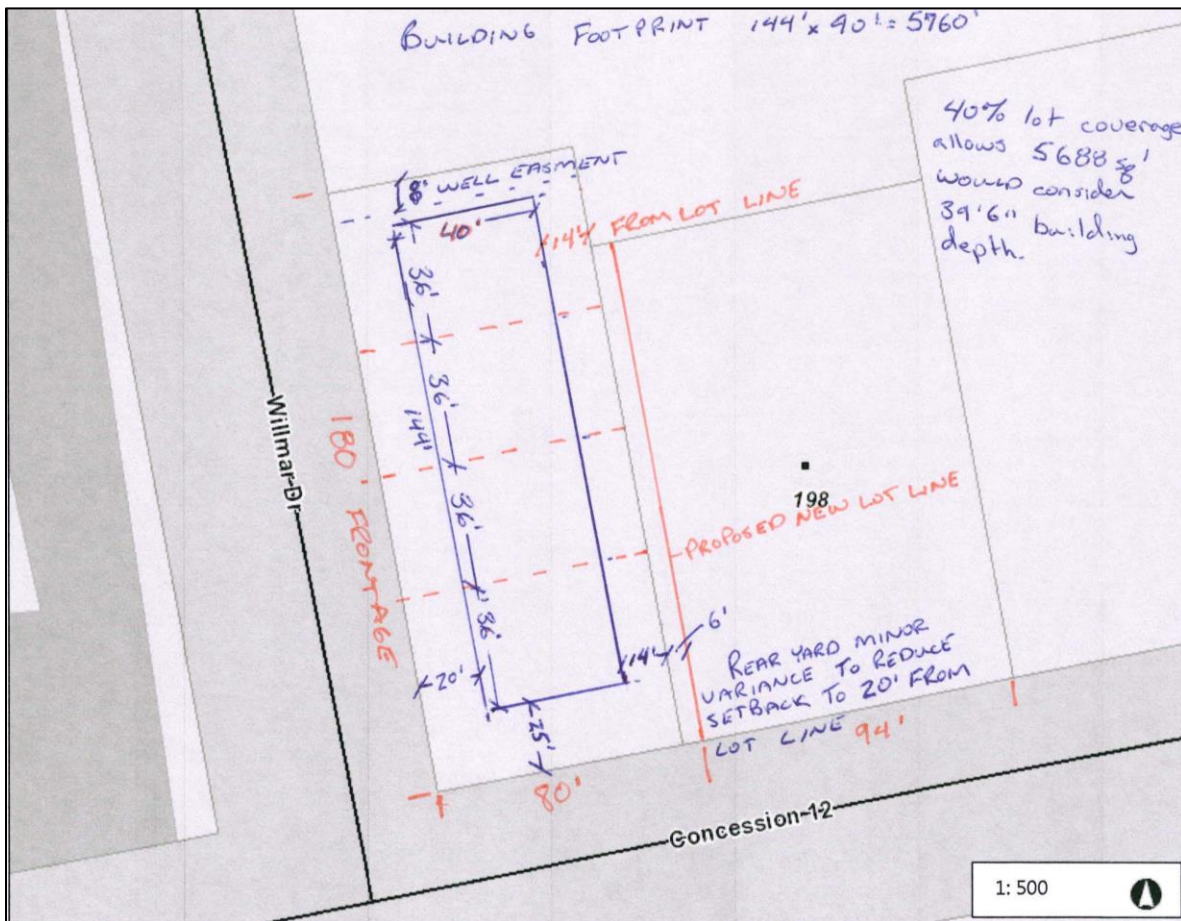 BUILDING FOOTPRINT 144' x 40' = 5760'
40% lot coverage
allows 5688 sq'
would consider
39'6" building
depth.
8' WELL EASMENT
40'
14' FROM LOT LINE
36'
36'
144'
36'
36'
180' FRONTAGE
Willmar Dr
198
PROPOSED NEW LOT LINE
6'
14'
20'
25'
80'
REAR YARD MINOR
VARIANCE TO REDUCE
SETBACK TO 20' FROM
LOT LINE
94'
Concession 12
1: 500